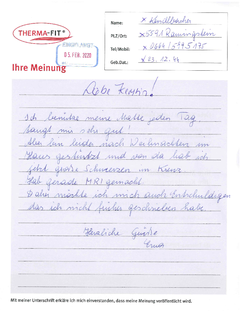 THERMA-FIT®
05. FEB. 2020
Ihre Meinung
Name:
PLZ/Ort: 5591
Tel/Mobil: 0644/5945175
Geb.Dat.: 03.12.
Liebe
Ich benütze meine Matte jeden Tag
taugt mir sehr gut!
Bin leider nach Weihnachten im
Haus gestürzt und von da hab ich
jetzt große Schmerzen im Kreuz
Hab gerade MRI gemacht.
Dabei möchte ich mich auch entschuldigen
das ich nicht früher geschrieben habe.
Herzliche Grüße
Mit meiner Unterschrift erkläre ich mich einverstanden, dass meine Meinung veröffentlicht wird.